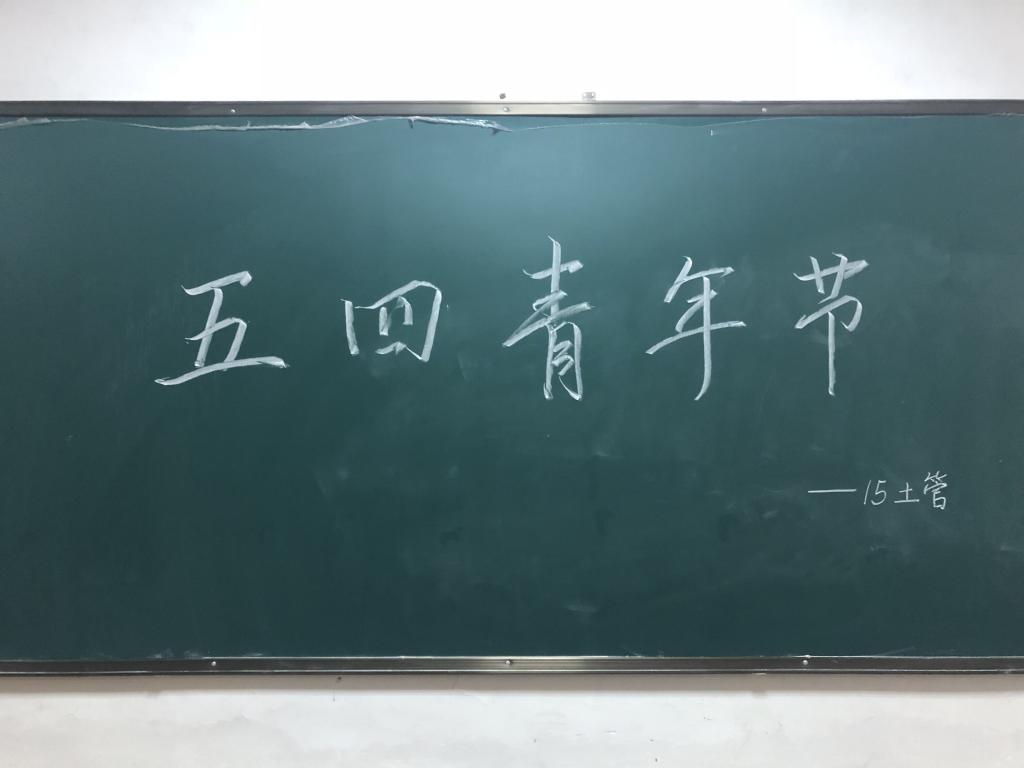 五四青年节
——15土管